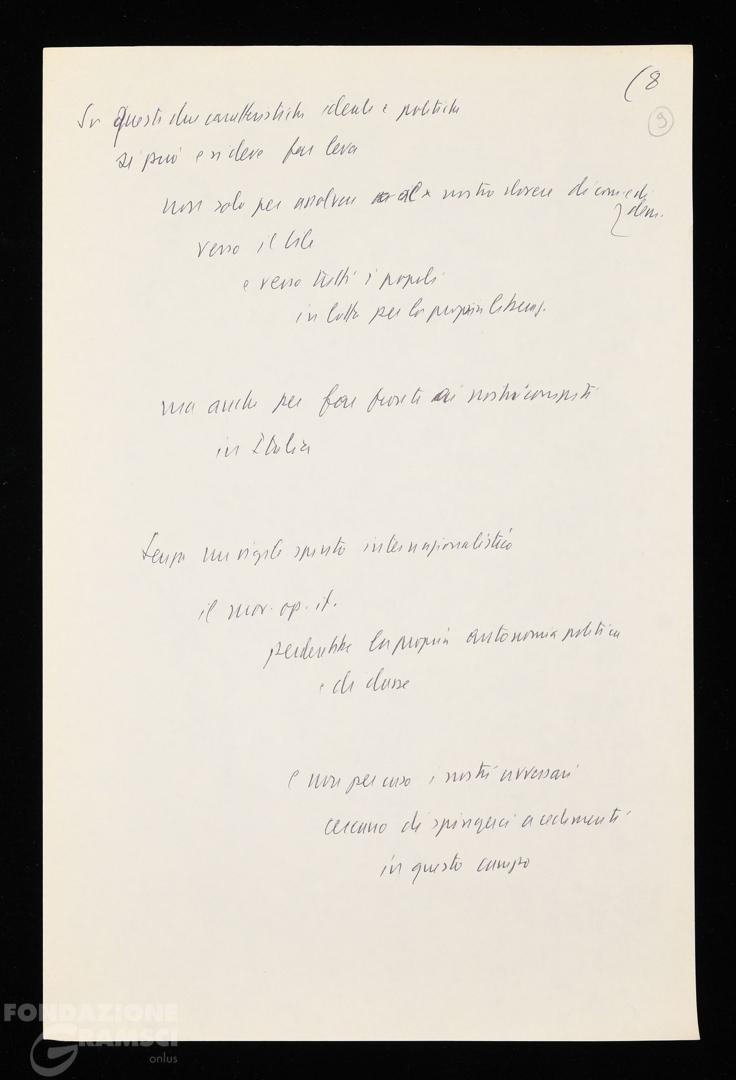 (8
9
Su queste due caratteristiche ideali e politiche
si può e si deve far leva
non solo per assolvere al nostro dovere di com. e di
dem.
verso il Cile
e verso tutti i popoli
in lotta per la propria liberaz.
ma anche per far fronte ai nostri compiti
in Italia
Senza un vigile spirito internazionalistico
il mov. op. it.
perderebbe la propria autonomia politica
e di classe
e non per caso i nostri avversari
cercano di spingerci a cedimenti
in questo campo
FONDAZIONE
GRAMSCI
onlus